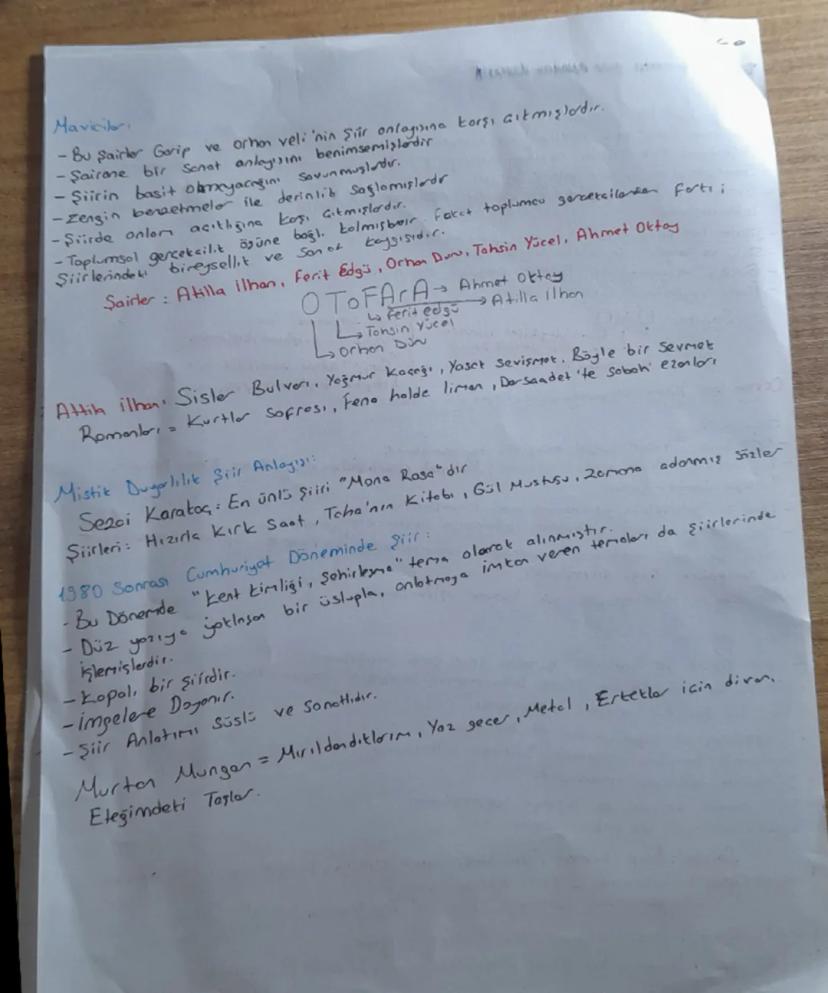 Maviciler:
- Bu şairler Garip ve orhan veli'nin şiir anlayışına karşı çıkmışlardır.
- Şairane bir sanat anlayışını benimsemişlerdir
- Şiirin basit olmayacağını savunmuşlardır.
- Zengin benzetmeler ile derinlik sağlamışlardır
- Şiirde anlam açıklığına karşı çıkmışlardır.
- Toplumsal gerçekcilik özüne bağlı kalmışlardır fakat toplumcu gerçekcilerden farkı;
Şiirlerindeki bireysellik ve sanat kaygısıdır.
Şairler : Atilla ilhan, Ferit Edgü, Orhan Duru, Tahsin Yücel, Ahmet Oktay
OToFArA → Ahmet Oktay
→ Atilla İlhan
→ Ferit edgü
→ Tahsin Yücel
→ Orhan Duru
Attila ilhan: Sisler Bulvarı, Yağmur Kaçağı, Yasak sevişmek, Böyle bir sevmek
Romanları = Kurtlar Sofrası, Fena halde liman, Dersaadet'te sabah ezanları
Mistik Duyarlılık Şiir Anlayışı:
Sezai Karakoç: En ünlü şiiri "Mona Rosa"dır
Şiirleri: Hızırla Kırk Saat, Taha'nın Kitabı, Gül Mustusu, Zamana adanmış sözler
1980 Sonrası Cumhuriyat Döneminde Şiir:
- Bu Dönemde "kent kimliği, şehirleşme" tema olarak alınmıştır.
- Düz yazıya yaklaşan bir üslupla, anlatmaya imkan veren temaları da şiirlerinde
işlemişlerdir.
- Kapalı bir şiirdir.
- İmgelere Dayanır.
- Şiir Anlatımı süslü ve sanatlıdır.
Murtan Mungan = Mırıldandıklarım, Yaz geçer, Metal, Erkekler için divan,
Eteğimdeki Taşlar.